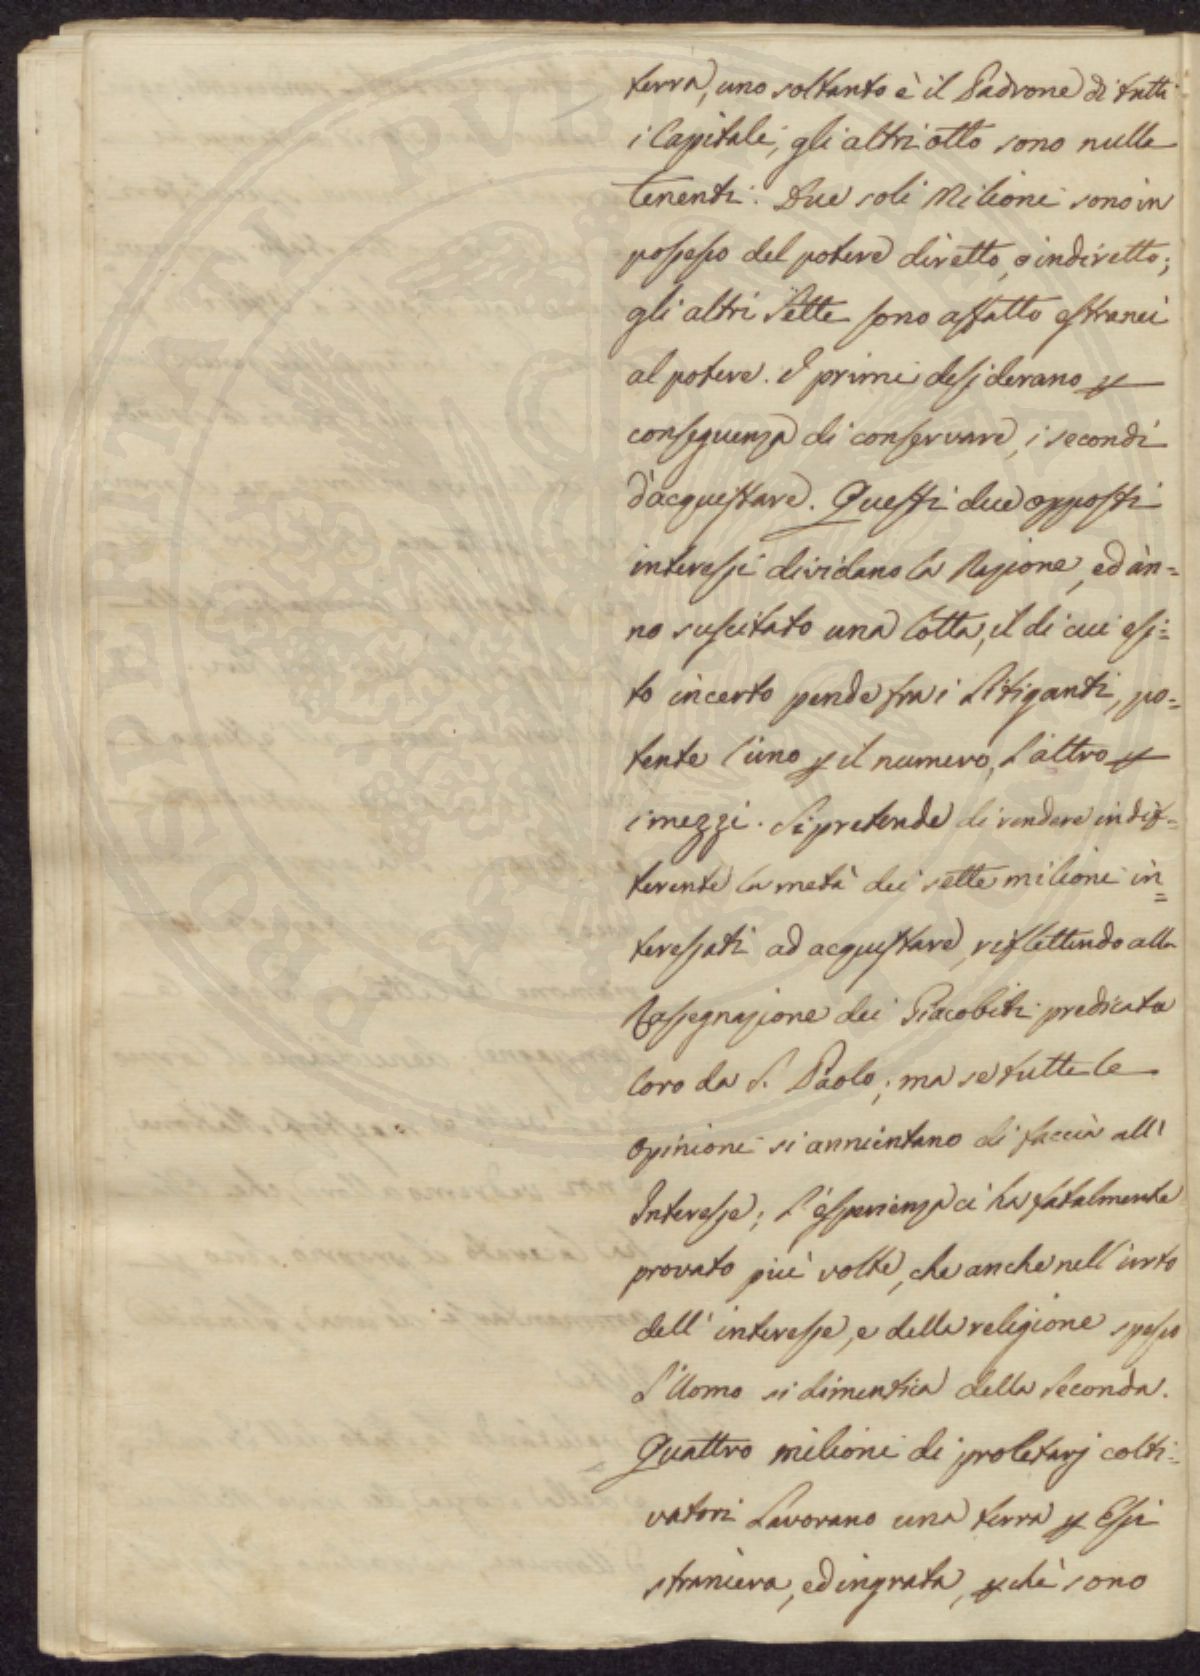 terra, uno soltanto è il Padrone di tutti
i Capitali; gli altri otto sono nulle
tenenti. Due soli Milioni sono in
possesso del potere diretto, o indiretto;
gli altri Sette sono affatto estranei
al potere. I primi desiderano p
conseguenza di conservare, i secondi
d'acquistare. Questi due opposti
interessi dividano la Regione, ed àn=
no suscitato una lotta, il di cui esi=
to incerto pende fra i Litiganti, po=
tente l'uno p il numero, l'altro p
i mezzi. Si pretende di rendere indif=
ferente la metà dei sette milioni in=
teressati ad acquistare, riflettendo alla
Rassegnazione dei Giacobiti predicata
loro da S. Paolo; ma se tutte le
opinioni si annientano di faccia all'
Interesse; l'esperienza ci ha fatalmente
provato più volte, che anche nell'urto
dell'interesse, e della religione spesso
l'Uomo si dimentica della Seconda.
Quattro milioni di proletarj colti=
vatori Lavorano una terra p Essi
straniera, ed ingrata, pchè sono